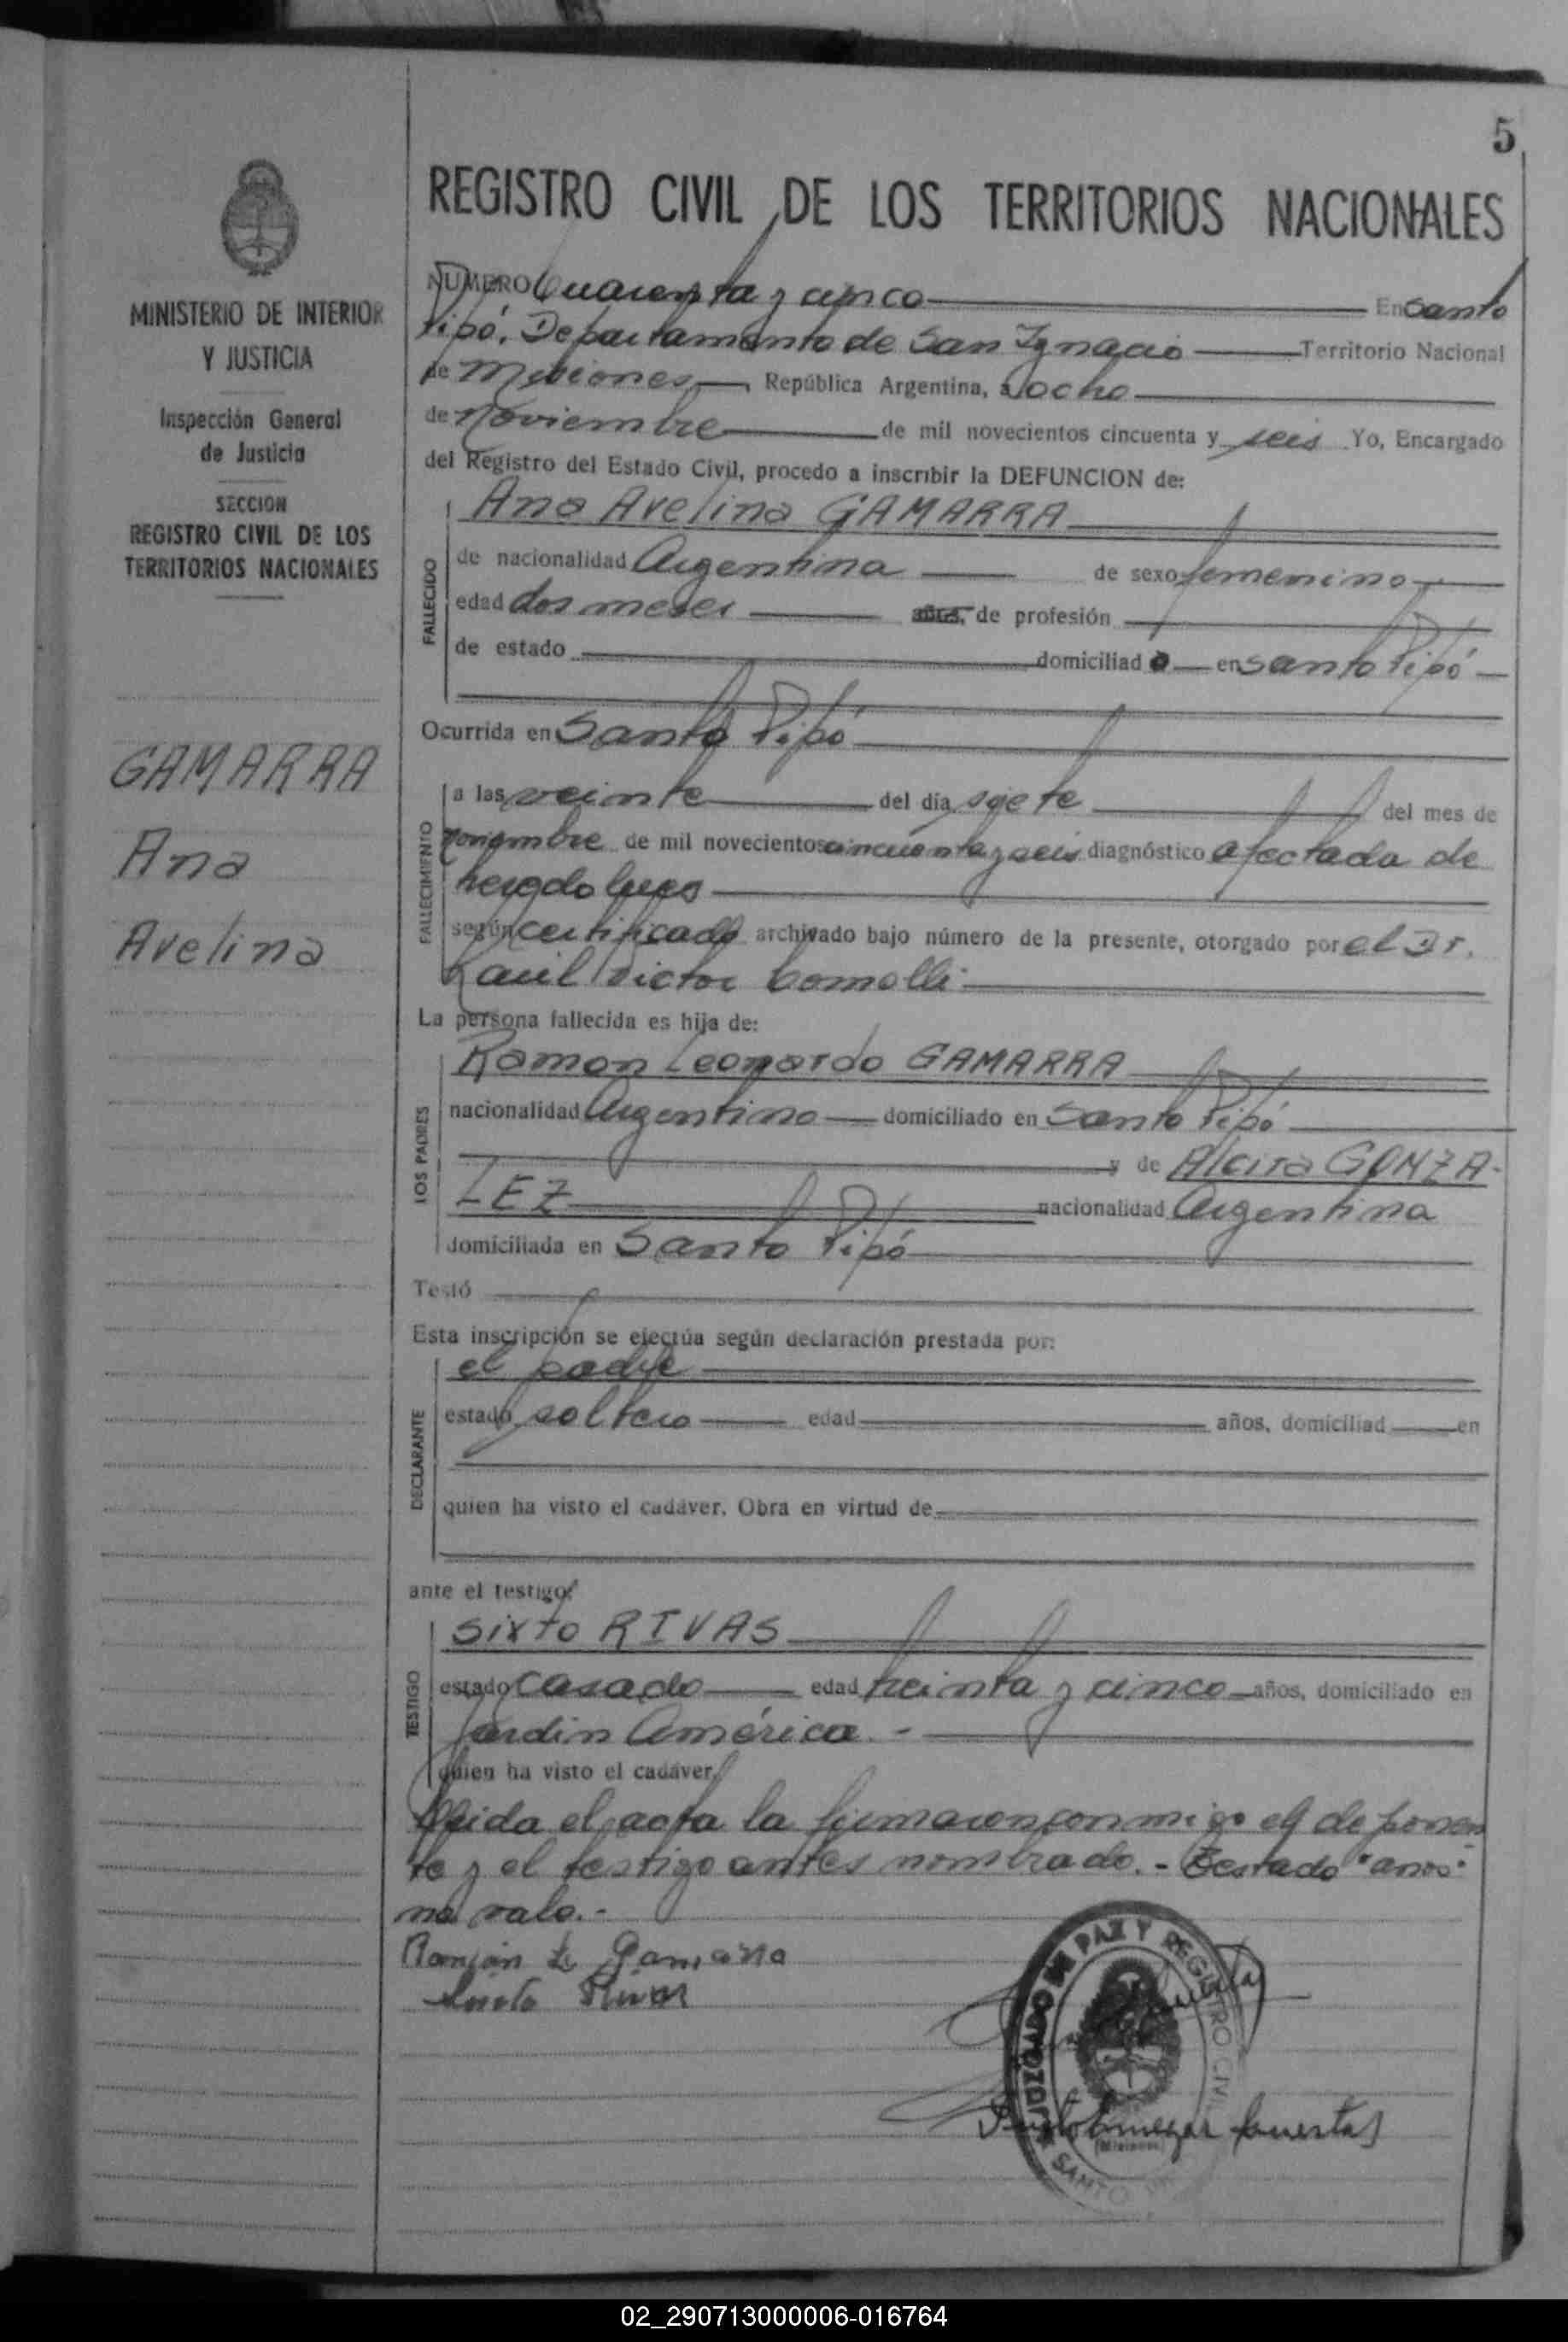 5
REGISTRO CIVIL DE LOS TERRITORIOS NACIONALES
MINISTERIO DE INTERIOR
Y JUSTICIA
Inspección General
de Justicia
SECCION
REGISTRO CIVIL DE LOS
TERRITORIOS NACIONALES
GAMARRA
Ana
Avelina
NUMERO Cuarenta y cinco En Santo
Pipó, Departamento de San Ignacio Territorio Nacional
de Misiones, República Argentina, a ocho
de noviembre de mil novecientos cincuenta y seis Yo, Encargado
del Registro del Estado Civil, procedo a inscribir la DEFUNCION de:
FALLECIDO
Ana Avelina GAMARRA
de nacionalidad Argentina de sexo femenino
edad dos meses años, de profesión
de estado domiciliad a en Santo Pipó
Ocurrida en Santo Pipó
FALLECIMIENTO
a las veinte del día siete del mes de
noviembre de mil novecientos cincuenta y seis diagnóstico afectada de
heredo lues
según certificado archivado bajo número de la presente, otorgado por el Dr.
Raúl Victor Comolli
La persona fallecida es hija de:
LOS PADRES
Ramon Leonardo GAMARRA
nacionalidad Argentino domiciliado en Santo Pipó
y de Alcira GONZA-
LEZ nacionalidad Argentina
domiciliada en Santo Pipó
Testó
Esta inscripción se efectúa según declaración prestada por:
DECLARANTE
el padre
estado soltero edad años, domiciliad en
quien ha visto el cadáver. Obra en virtud de
ante el testigo:
TESTIGO
Sixto RIVAS
estado casado edad treinta y cinco años, domiciliado en
Jardin América.-
quien ha visto el cadáver.
Leida el acta la firmaron conmigo el deponen
te y el testigo antes nombrado.- Testado "años"
no vale.-
Ramón L. Gamarra
Sixto Rivas
JUZGADO DE PAZ Y REGISTRO CIVIL
(Misiones)
SANTO PIPO
Cuestas
02_290713000006-016764